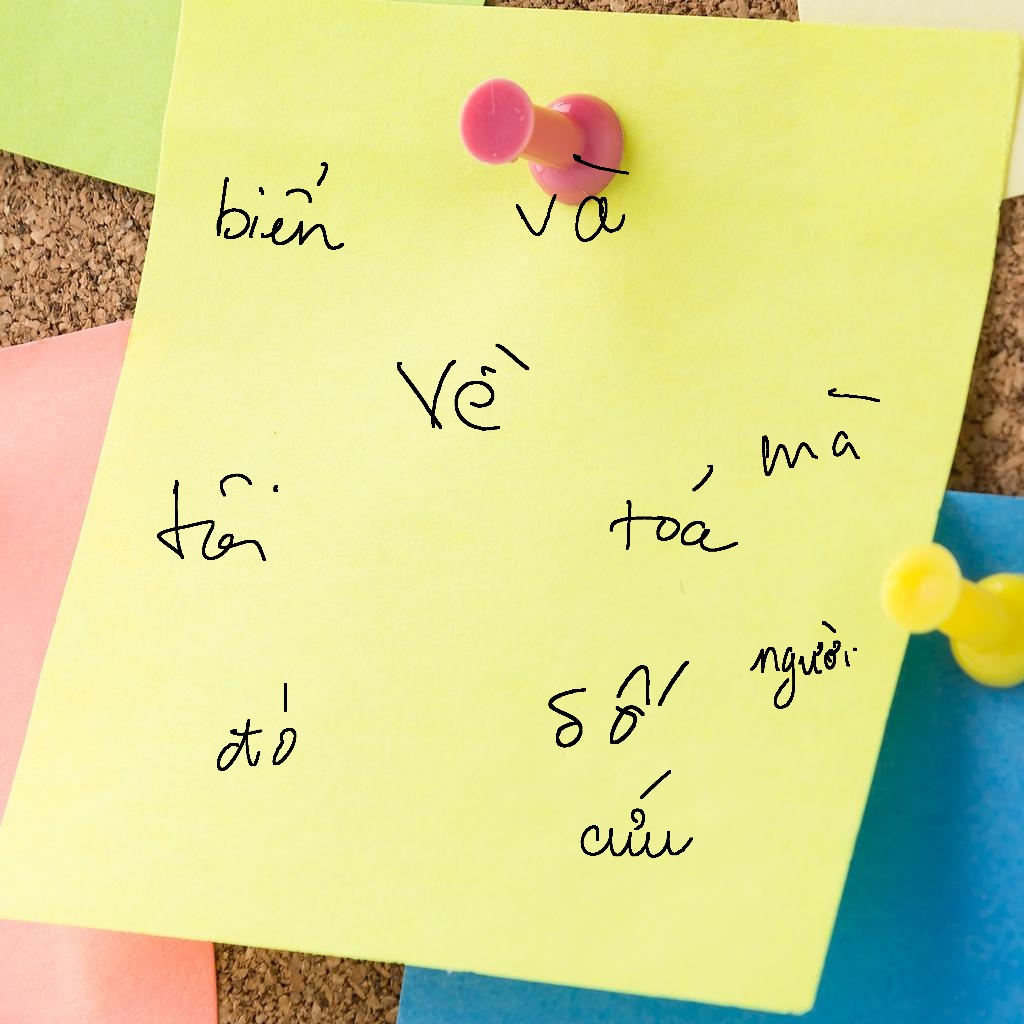 biến và
Về
mà
tôi toá
người
đó số
cứu